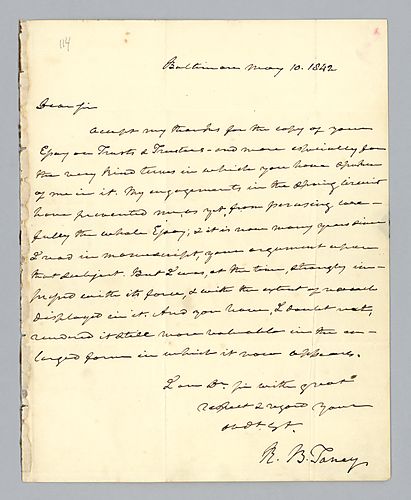 114
Baltimore May 10. 1842
Dear Sir
Accept my thanks for the copy of your
Essay on Trusts & Trustees - and more especially for
the very kind terms in which you have spoken
of me in it. My engagements in the Spring Circuit
have prevented me as yet, from perusing care-
fully the whole Essay; & it is now many years since
I read in manuscript, your argument upon
that subject. But I was, at the time, strongly im-
pressed with its force, & with the extent of research
displayed in it. And you have, I doubt not,
rendered it still more valuable in the en-
larged form in which it now appears.
I am Dr Sir with great
respect & regard your
obdt Svt.
R. B. Taney